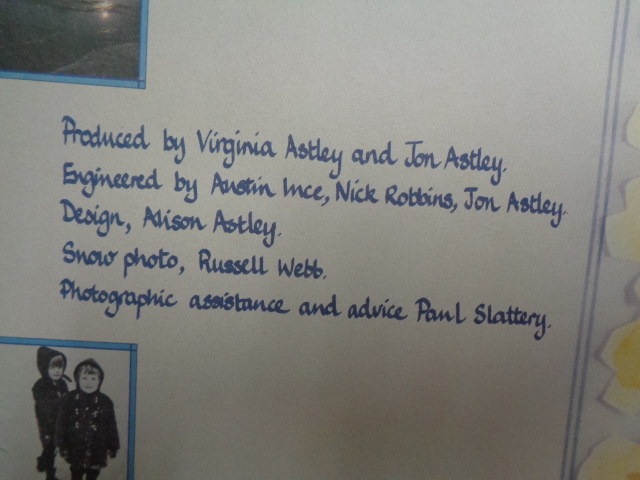 Produced by Virginia Astley and Jon Astley.
Engineered by Austin Ince, Nick Robbins, Jon Astley.
Design, Alison Astley.
Snow photo, Russell Webb.
Photographic assistance and advice Paul Slattery.